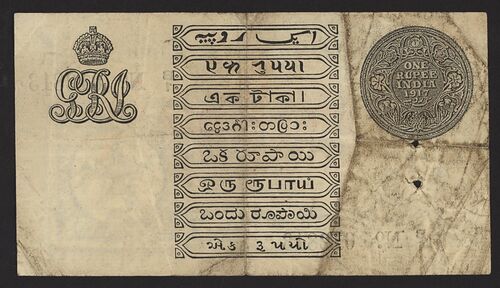 GRI
ایک روپیہ
𑂉𑂍 𑂩𑂳𑂣𑂨𑂰
এক টাকা।
ఒక రూపాయి
ஒரு ரூபாய்
ಒಂದು ರೂಪಾಯಿ
એક રૂપયો
ONE
RUPEE
INDIA
1917